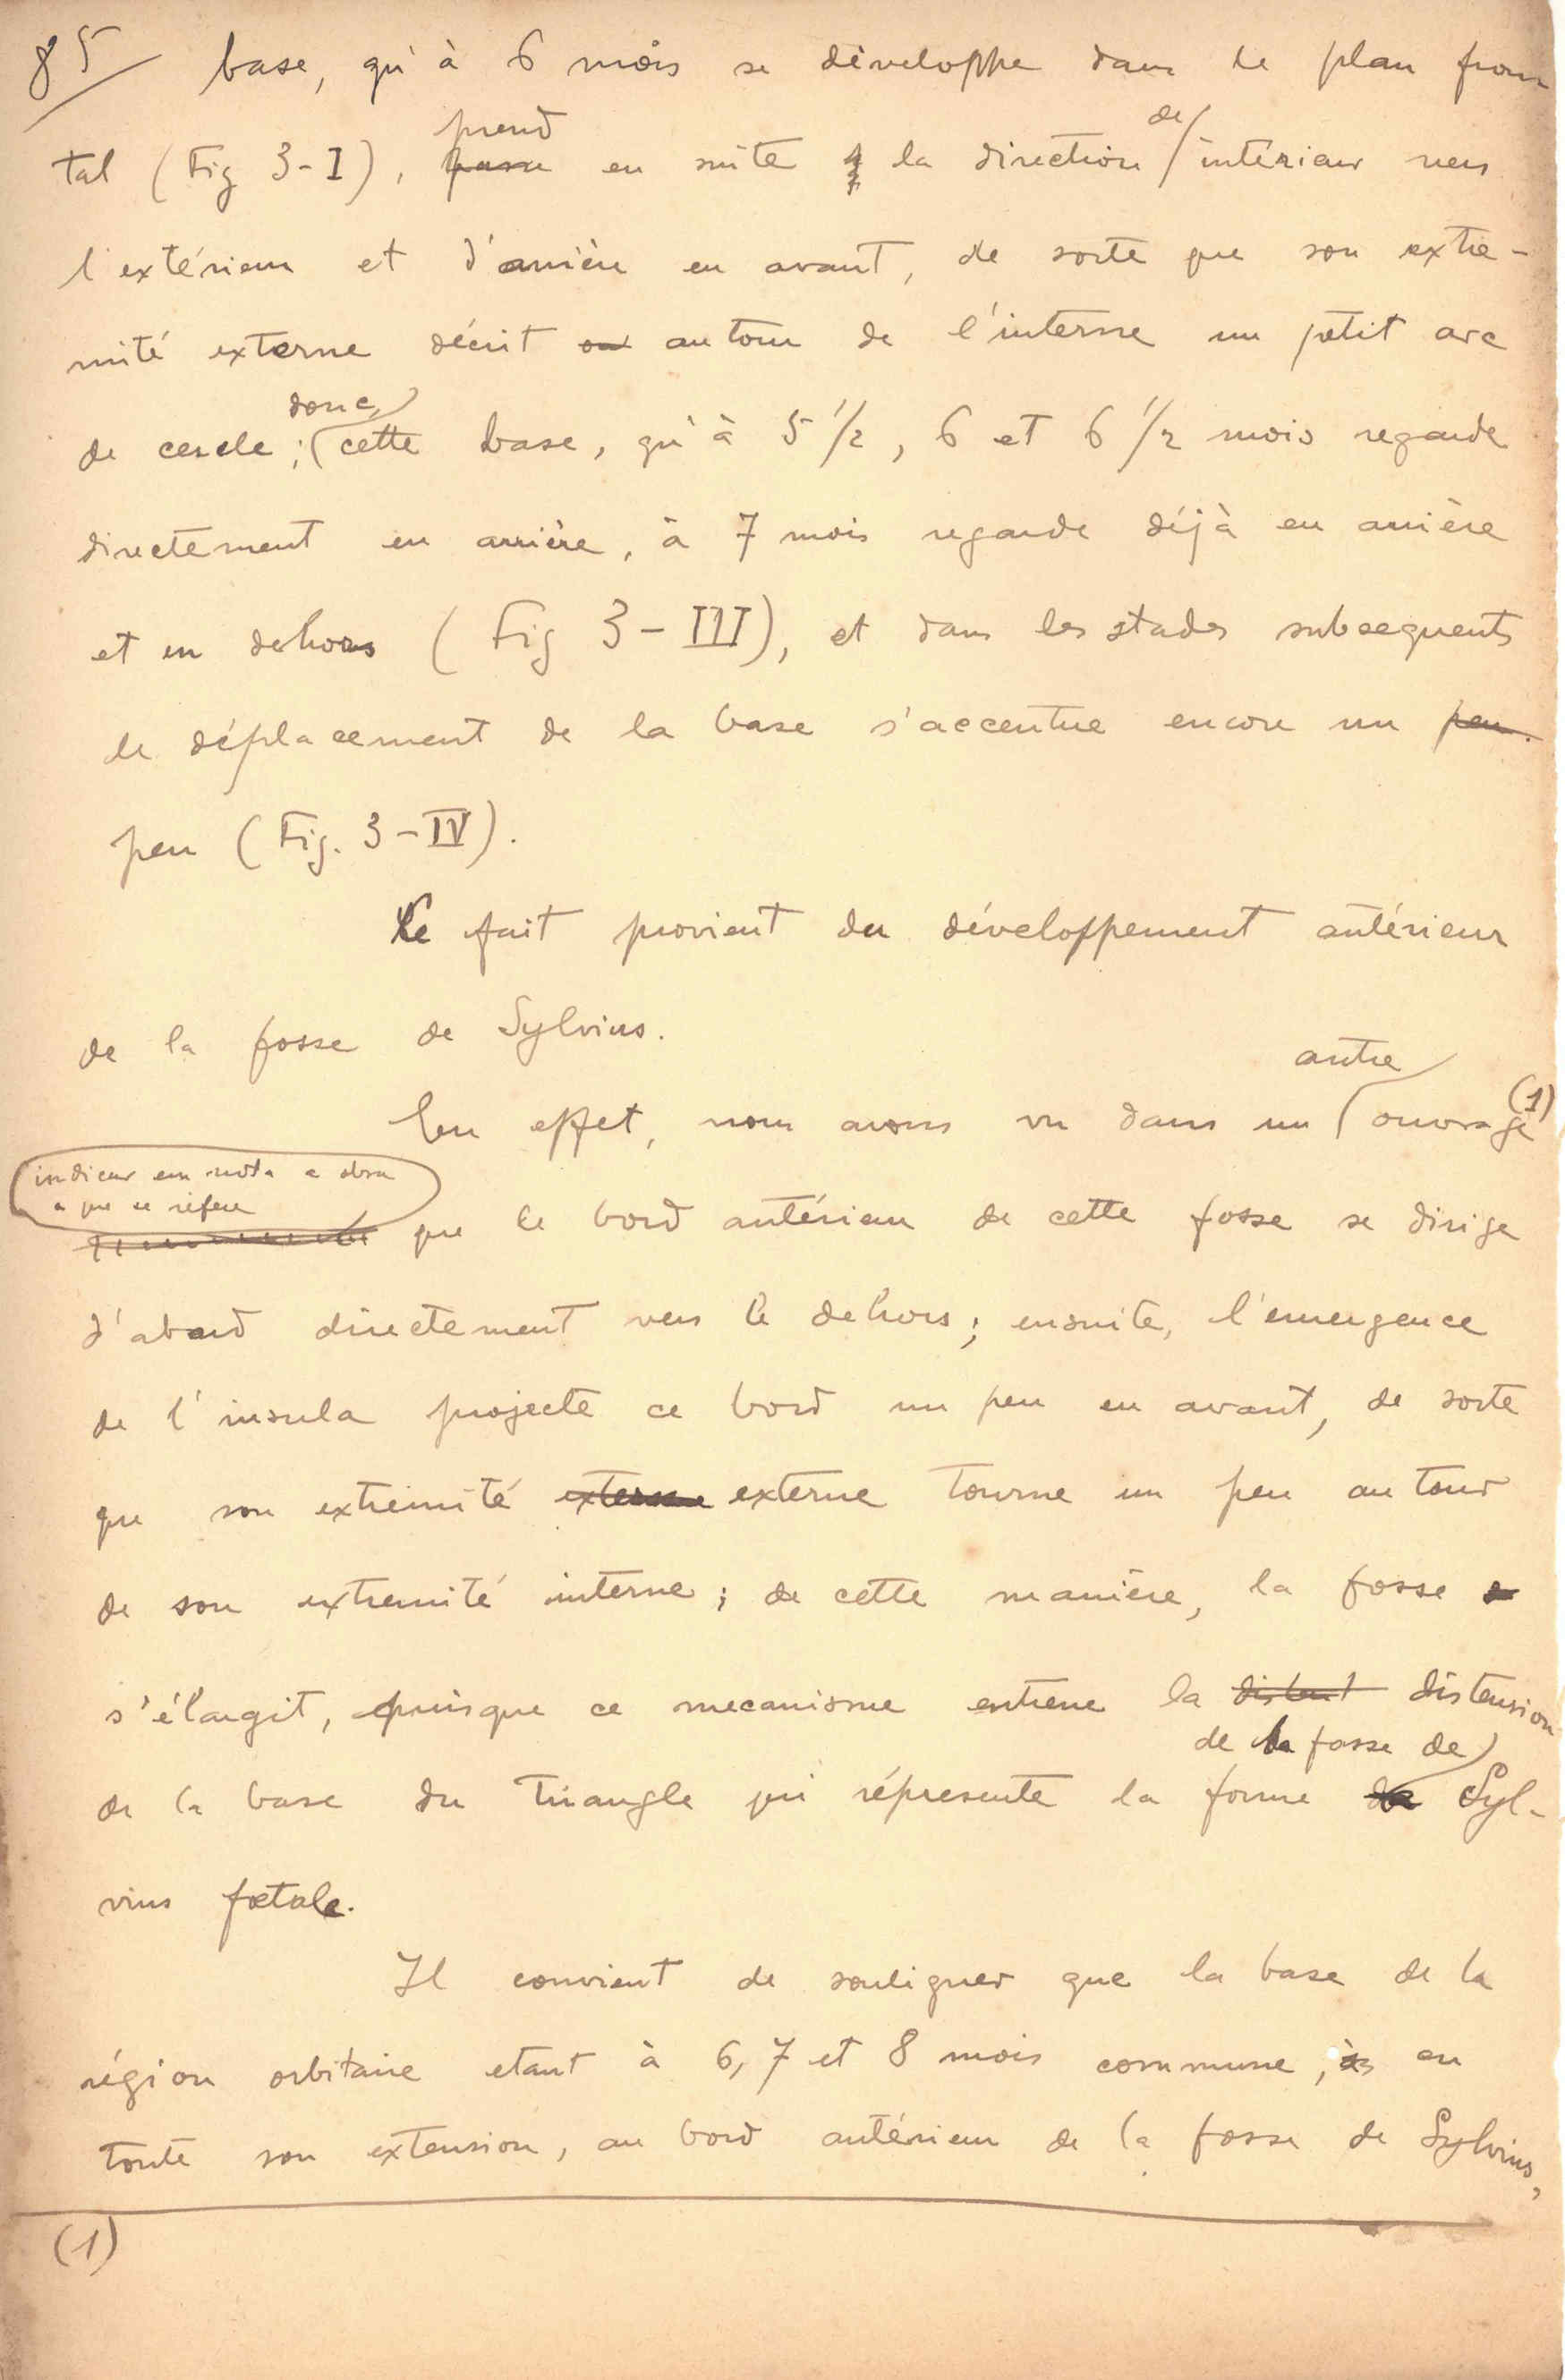 85/ base, qu'à 6 mois se développe dans le plan fron
prend de/
tal (Fig 3-I), en suite la direction / intérieur vers
l'extérieur et d'arrière en avant, de sorte que son extre-
mité externe décrit autour de l'interne un petit arc
donc
de cercle ; cette base, qu'à 5 1/2, 6 et 6 1/2 mois regarde
directement en arrière, à 7 mois regarde déjà en arrière
et en dehors (Fig 3-III), et dans les stades subsequents
le déplacement de la base s'accentue encore un peu.
peu (Fig. 3-IV).
Le fait provient du développement antérieur
de la fosse de Sylvius.
autre
En effet, nous avons vu dans un ouvrage (1)
indicar em nota a obra
a que se refere
que le bord antérieur de cette fosse se dirige
d'abord directement vers le dehors ; ensuite, l'emergence
de l'insula projecte ce bord un peu en avant, de sorte
que son extremité externe externe tourne un peu autour
de son extremité interne ; de cette manière, la fosse
s'élargit, puisque ce mecanisme entrene la distent distension
de la fosse de
de la base du triangle qui répresente la forme de Syl-
vius fœtale.
Il convient de souligner que la base de la
région orbitaire etant à 6, 7 et 8 mois commune, en
toute son extension, au bord antérieur de la fosse de Sylvius,
(1)